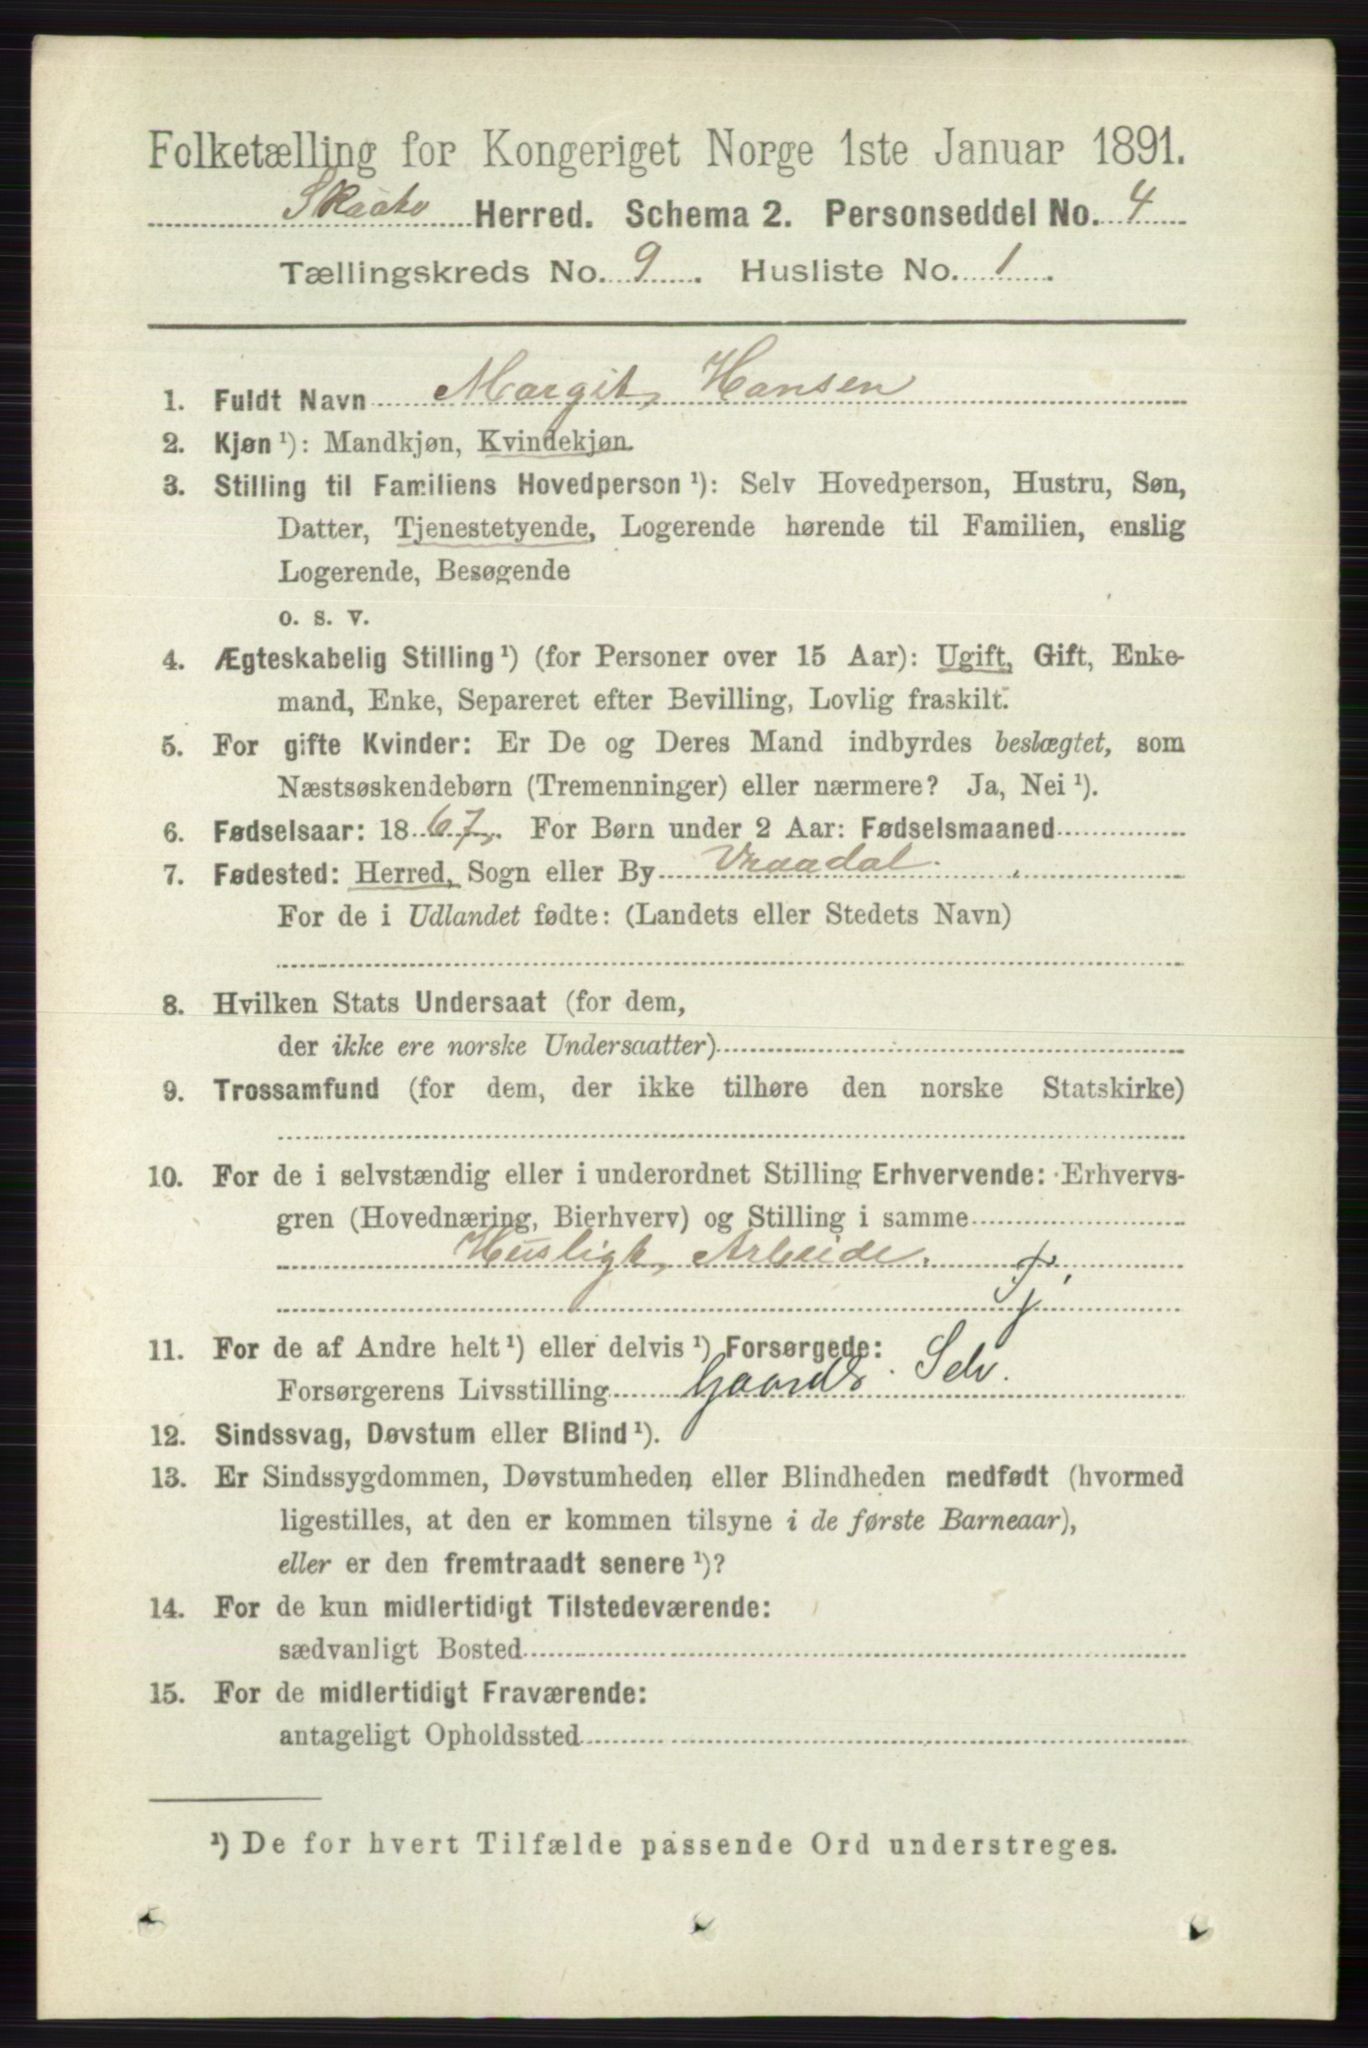 Folketælling for Kongeriget Norge 1ste Januar 1891.
Skaatø Herred. Schema 2. Personseddel No. 4
Tællingskreds No. 9. Husliste No. 1.
1. Fuldt Navn Margit Hansen
2. Kjøn ¹): Mandkjøn, Kvindekjøn.
3. Stilling til Familiens Hovedperson ¹): Selv Hovedperson, Hustru, Søn,
Datter, Tjenestetyende, Logerende hørende til Familien, enslig
Logerende, Besøgende
o. s. v.
4. Ægteskabelig Stilling ¹) (for Personer over 15 Aar): Ugift, Gift, Enke-
mand, Enke, Separeret efter Bevilling, Lovlig fraskilt.
5. For gifte Kvinder: Er De og Deres Mand indbyrdes beslægtet, som
Næstsøskendebørn (Tremenninger) eller nærmere? Ja, Nei ¹).
6. Fødselsaar: 1867. For Børn under 2 Aar: Fødselsmaaned
7. Fødested: Herred, Sogn eller By Vraadal.
For de i Udlandet fødte: (Landets eller Stedets Navn)
8. Hvilken Stats Undersaat (for dem,
der ikke ere norske Undersaatter)
9. Trossamfund (for dem, der ikke tilhøre den norske Statskirke)
10. For de i selvstændig eller i underordnet Stilling Erhvervende: Erhvervs-
gren (Hovednæring, Bierhverv) og Stilling i samme
Husligt Arbeide.
Tj.
11. For de af Andre helt ¹) eller delvis ¹) Forsørgede:
Forsørgerens Livsstilling Gaardb. Selv.
12. Sindssvag, Døvstum eller Blind ¹).
13. Er Sindssygdommen, Døvstumheden eller Blindheden medfødt (hvormed
ligestilles, at den er kommen tilsyne i de første Barneaar),
eller er den fremtraadt senere ¹)?
14. For de kun midlertidigt Tilstedeværende:
sædvanligt Bosted
15. For de midlertidigt Fraværende:
antageligt Opholdssted
¹) De for hvert Tilfælde passende Ord understreges.